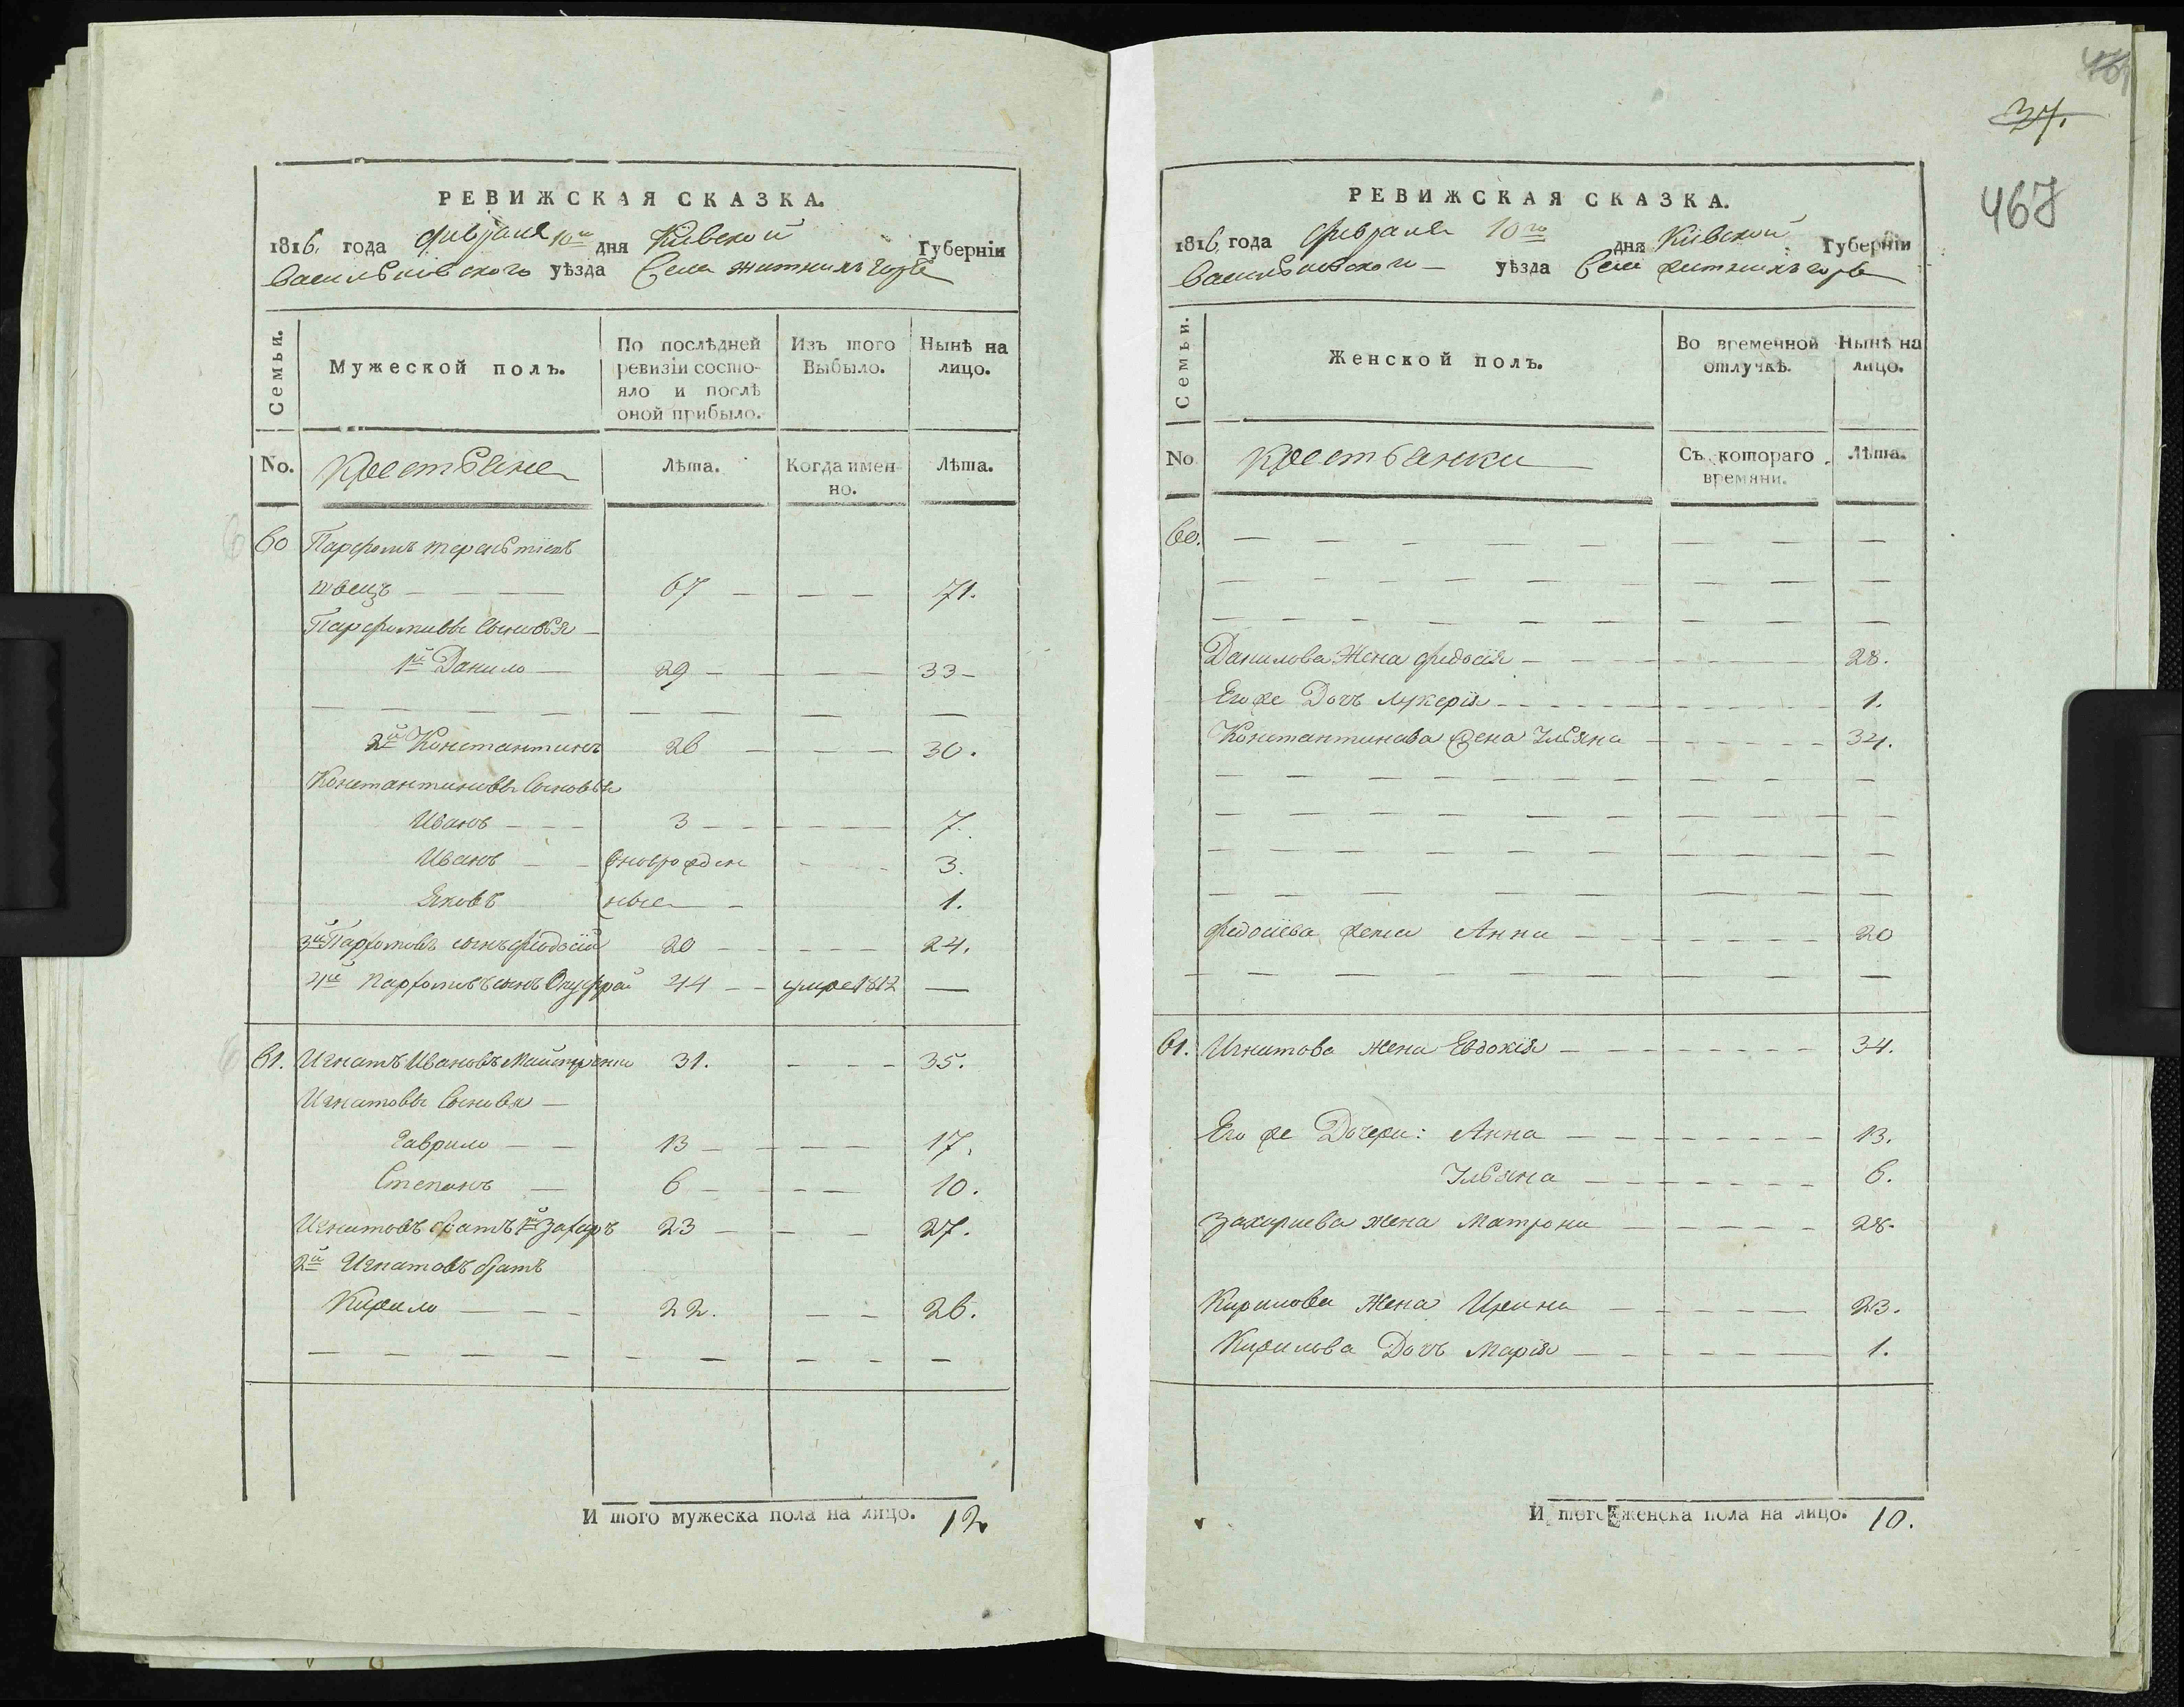 РЕВИЖСКАЯ СКАЗКА.
1816. года февраля 10го дня Кіевской Губерніи
Васильковского уѣзда Села Житнихъ горъ
Семьи.
Мужеской полъ.
По послѣдней ревизіи состояло и послѣ оной прибыло.
Изъ того Выбыло.
Нынѣ на лицо.
No.
Крестьяне
Лѣта.
Когда именно.
Лѣта.
60 Парфомъ Терентіевъ
швецъ — — — 67 — — — 71.
Парфомивы Сыновья —
1й Данило — 29 — — — 33 —
2й Константинъ 26 — — — 30.
Константиновы Сыновья
Иванъ — — — 3 — — — 7.
Иванъ — — вноврожден — — 3.
Яковъ ные — — 1.
3й Парфомовъ сынъ Феодосій 20 — — — 24.
4й Парфомивъ сынъ Онуфрей 44 — — умре 1812 —
61. Игнатъ Ивановъ Майстренко 31. — — — 35.
Игнатовы Сыновья —
Гаврило — — 13 — — — 17.
Степанъ — 6 — — — 10.
Игнатовъ братъ 1й Захаръ 23 — — — 27.
2й Игнатовъ братъ
Кирило — — — 22. — — 26.
И того мужеска пола на лицо. 12
467
37.
467
РЕВИЖСКАЯ СКАЗКА.
1816 года февраля 10го дня Кіевской Губерніи
Васильковского — уѣзда Села Житнихъ горъ
Семьи.
Женской полъ.
Во временной отлучкѣ.
Нынѣ на лицо.
No
Крестьянки
Съ котораго времяни.
Лѣта.
60.
Данилова Жена Федосія — 28.
Его же Дочь Лукерія — 1.
Константинова Жена Ульяна — 34.
Федосіева жена Анна — 20
61. Игнатова жена Евдокія — 34.
Его же Дочери: Анна — 13.
Ульяна — 6.
Захариева жена Матрона — 28.
Кирилова Жена Ирина — 23.
Кирилова Дочь Марія — 1.
И того женска пола на лицо. 10.